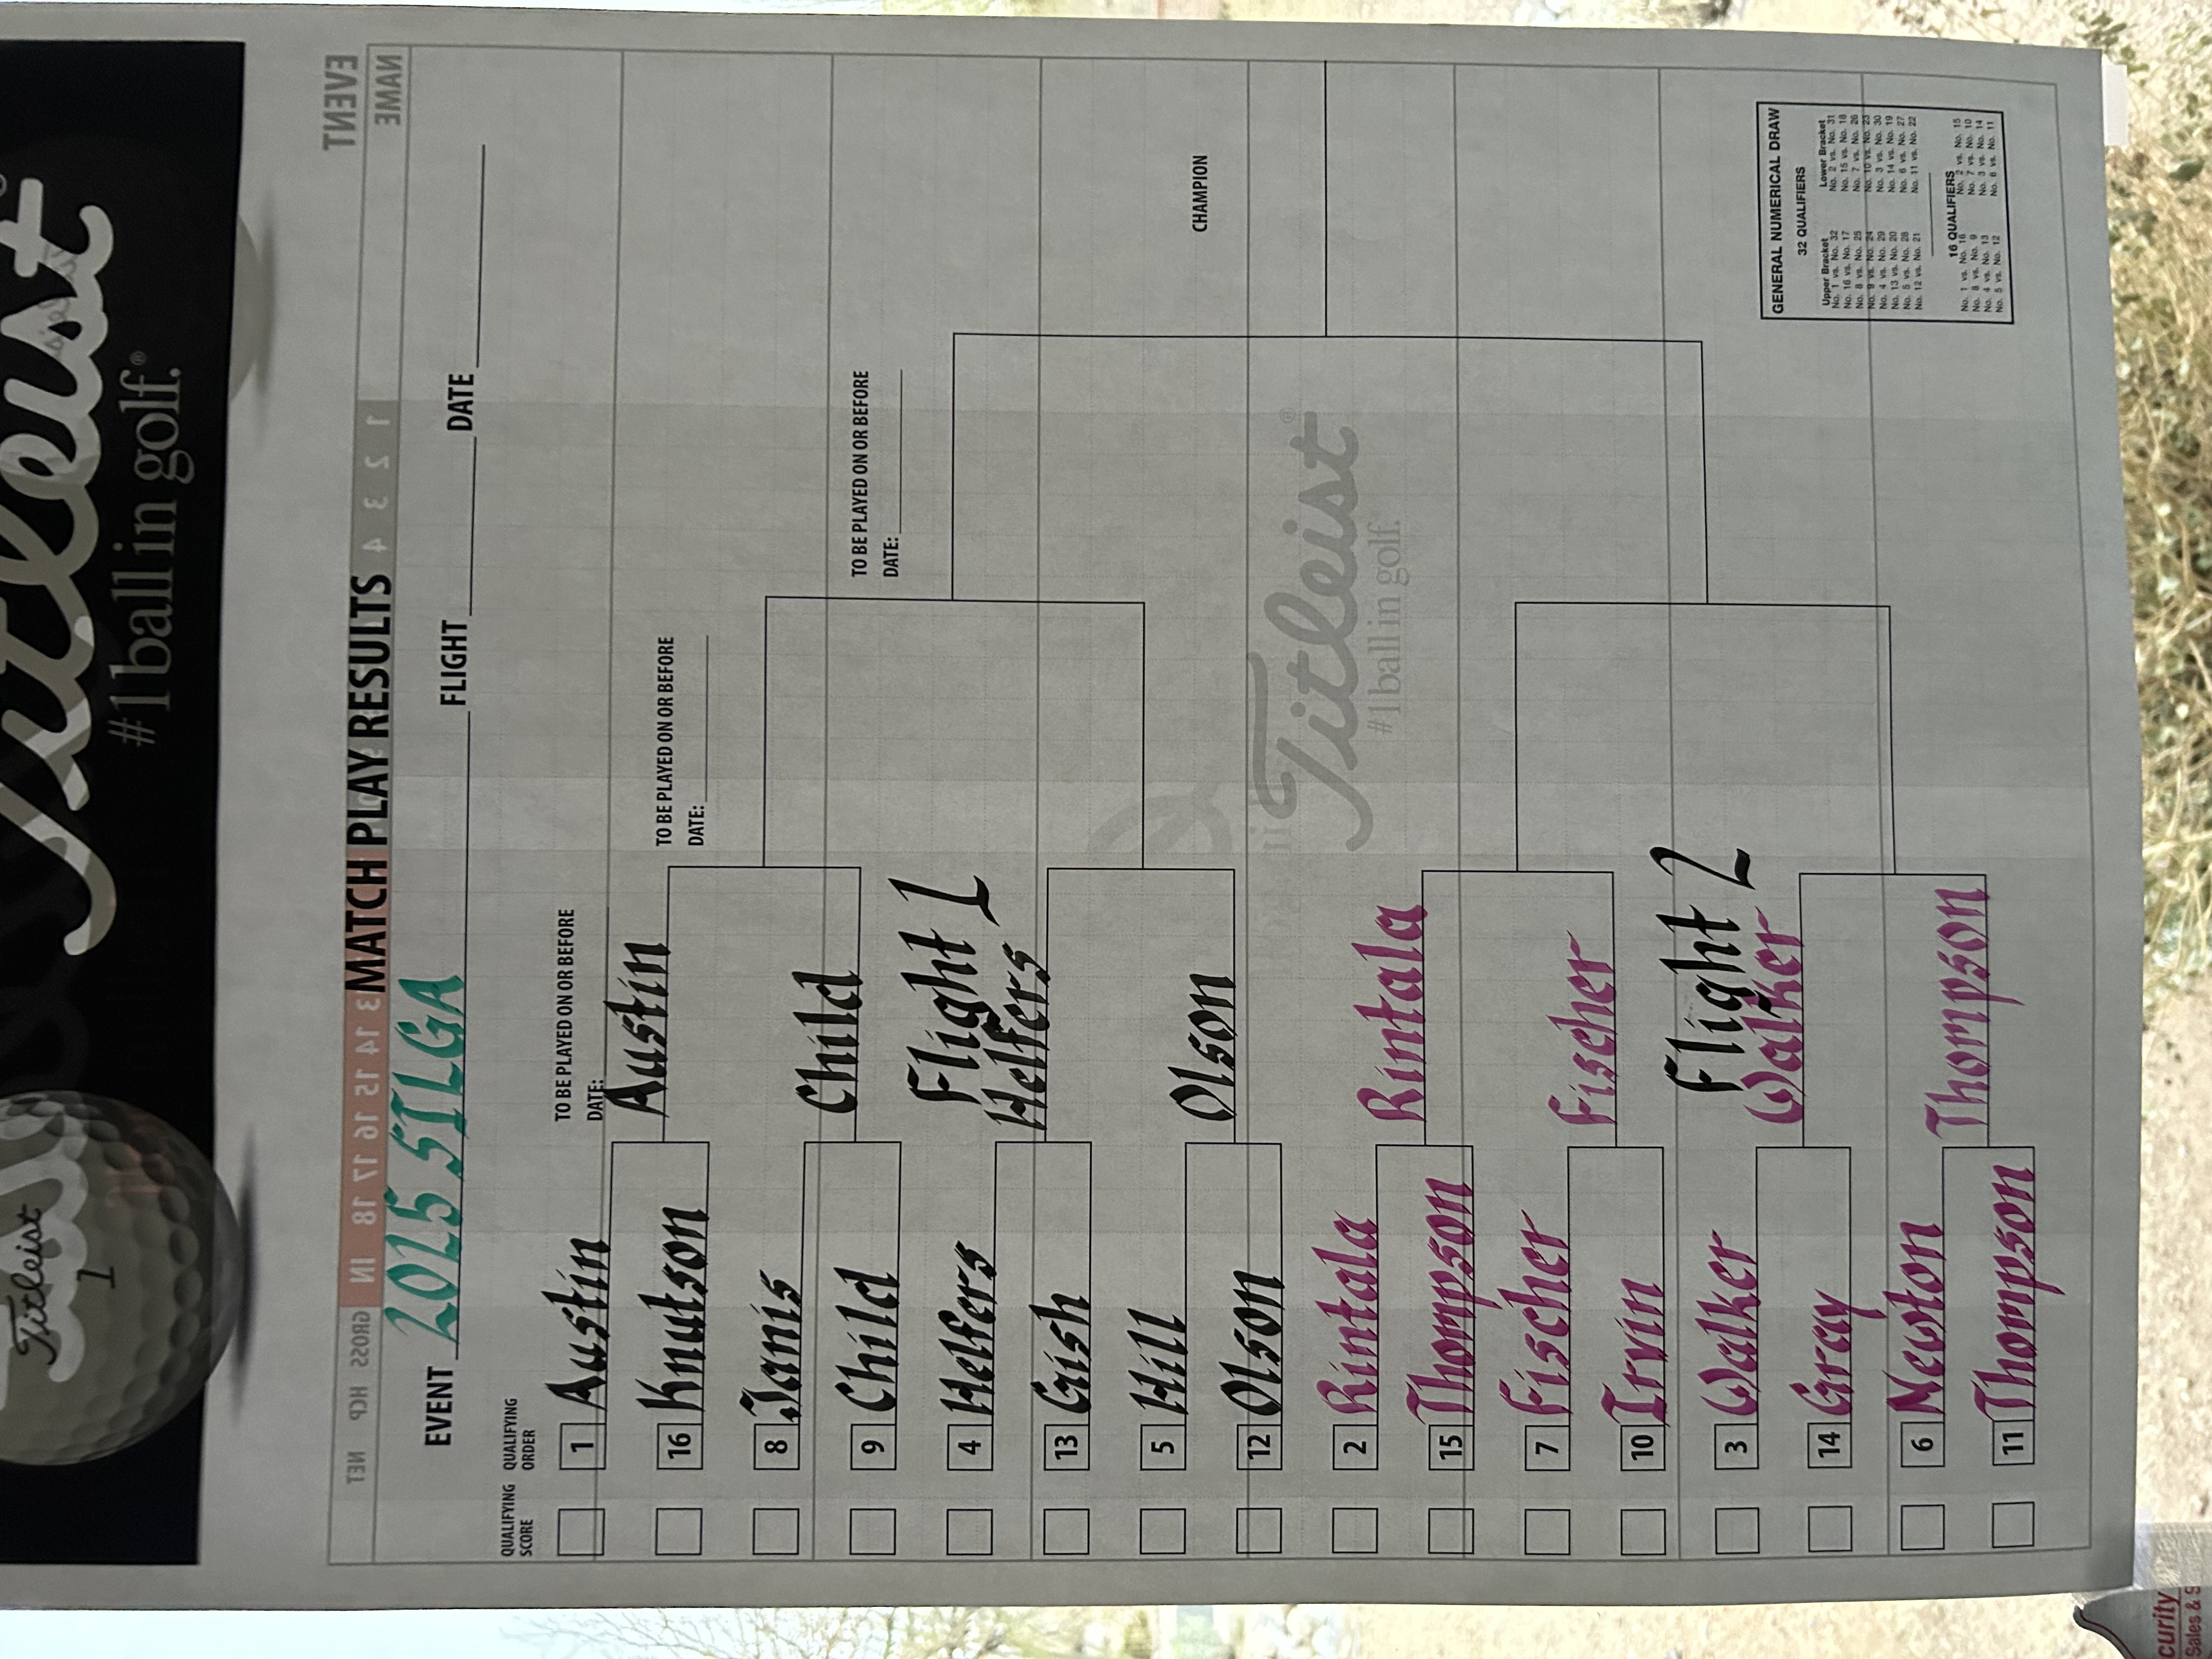 Titleist
#1 ball in golf.®
Titleist
1
EVENT
NAME
1 2 3 4
3 14 15 16 17 18 IN GROSS HCP NET
MATCH PLAY RESULTS
EVENT 2025 SILGA FLIGHT DATE
QUALIFYING SCORE
QUALIFYING ORDER
TO BE PLAYED ON OR BEFORE
DATE:
TO BE PLAYED ON OR BEFORE
DATE:
TO BE PLAYED ON OR BEFORE
DATE:
1 Austin
Austin
16 Knutson
8 Janis
Child
9 Child
Flight 1
4 Helfers
Helfers
13 Gish
5 Hill
Olson
12 Olson
CHAMPION
Titleist®
#1 ball in golf.
2 Rintala
Rintala
15 Thompson
7 Fischer
Fischer
10 Irvin
Flight 2
3 Walker
Walker
14 Gray
6 Newton
Thompson
11 Thompson
GENERAL NUMERICAL DRAW
32 QUALIFIERS
Upper Bracket Lower Bracket
No. 1 vs. No. 32 No. 2 vs. No. 31
No. 16 vs. No. 17 No. 15 vs. No. 18
No. 8 vs. No. 25 No. 7 vs. No. 26
No. 9 vs. No. 24 No. 10 vs. No. 23
No. 4 vs. No. 29 No. 3 vs. No. 30
No. 13 vs. No. 20 No. 14 vs. No. 19
No. 5 vs. No. 28 No. 6 vs. No. 27
No. 12 vs. No. 21 No. 11 vs. No. 22
16 QUALIFIERS
No. 1 vs. No. 16 No. 2 vs. No. 15
No. 8 vs. No. 9 No. 7 vs. No. 10
No. 4 vs. No. 13 No. 3 vs. No. 14
No. 5 vs. No. 12 No. 6 vs. No. 11
curity
Sales & S